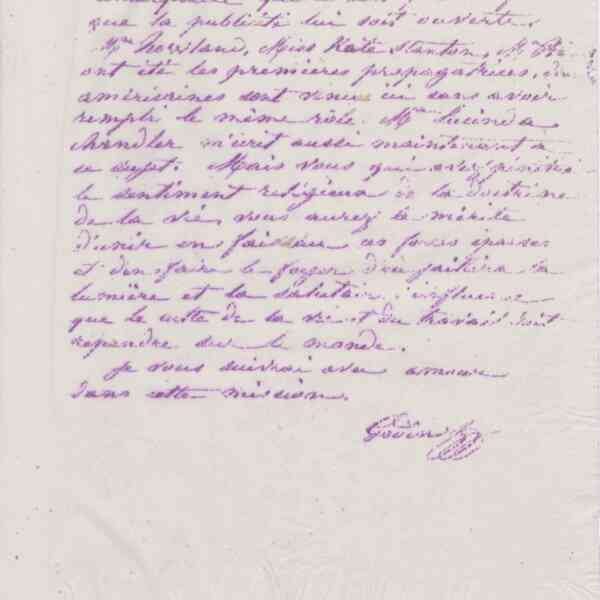 que la publicité lui soit ouverte.
Mme Howland, Miss Kate Stanton, Mme
ont été les premières propagatrices, des
américaines sont venues ici sans avoir
rempli le même rôle. Mme Lucinda
Chandler m'écrit aussi maintenant à
ce sujet. Mais vous qui avez
le sentiment religieux de la doctrine
de la vie, vous aurez le mérite
d'unir en faisceau ces forces éparses
et d'en faire le foyer d'où jaillira la
lumière et la salutaire influence
que le culte de la vie et du travail doit
répandre sur le monde.
Je vous suivrai avec amour
dans cette mission.
Godin